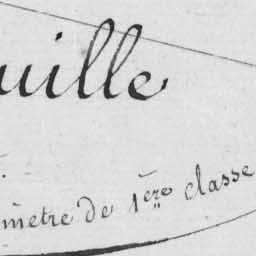 uille
mètre de 1ère classe